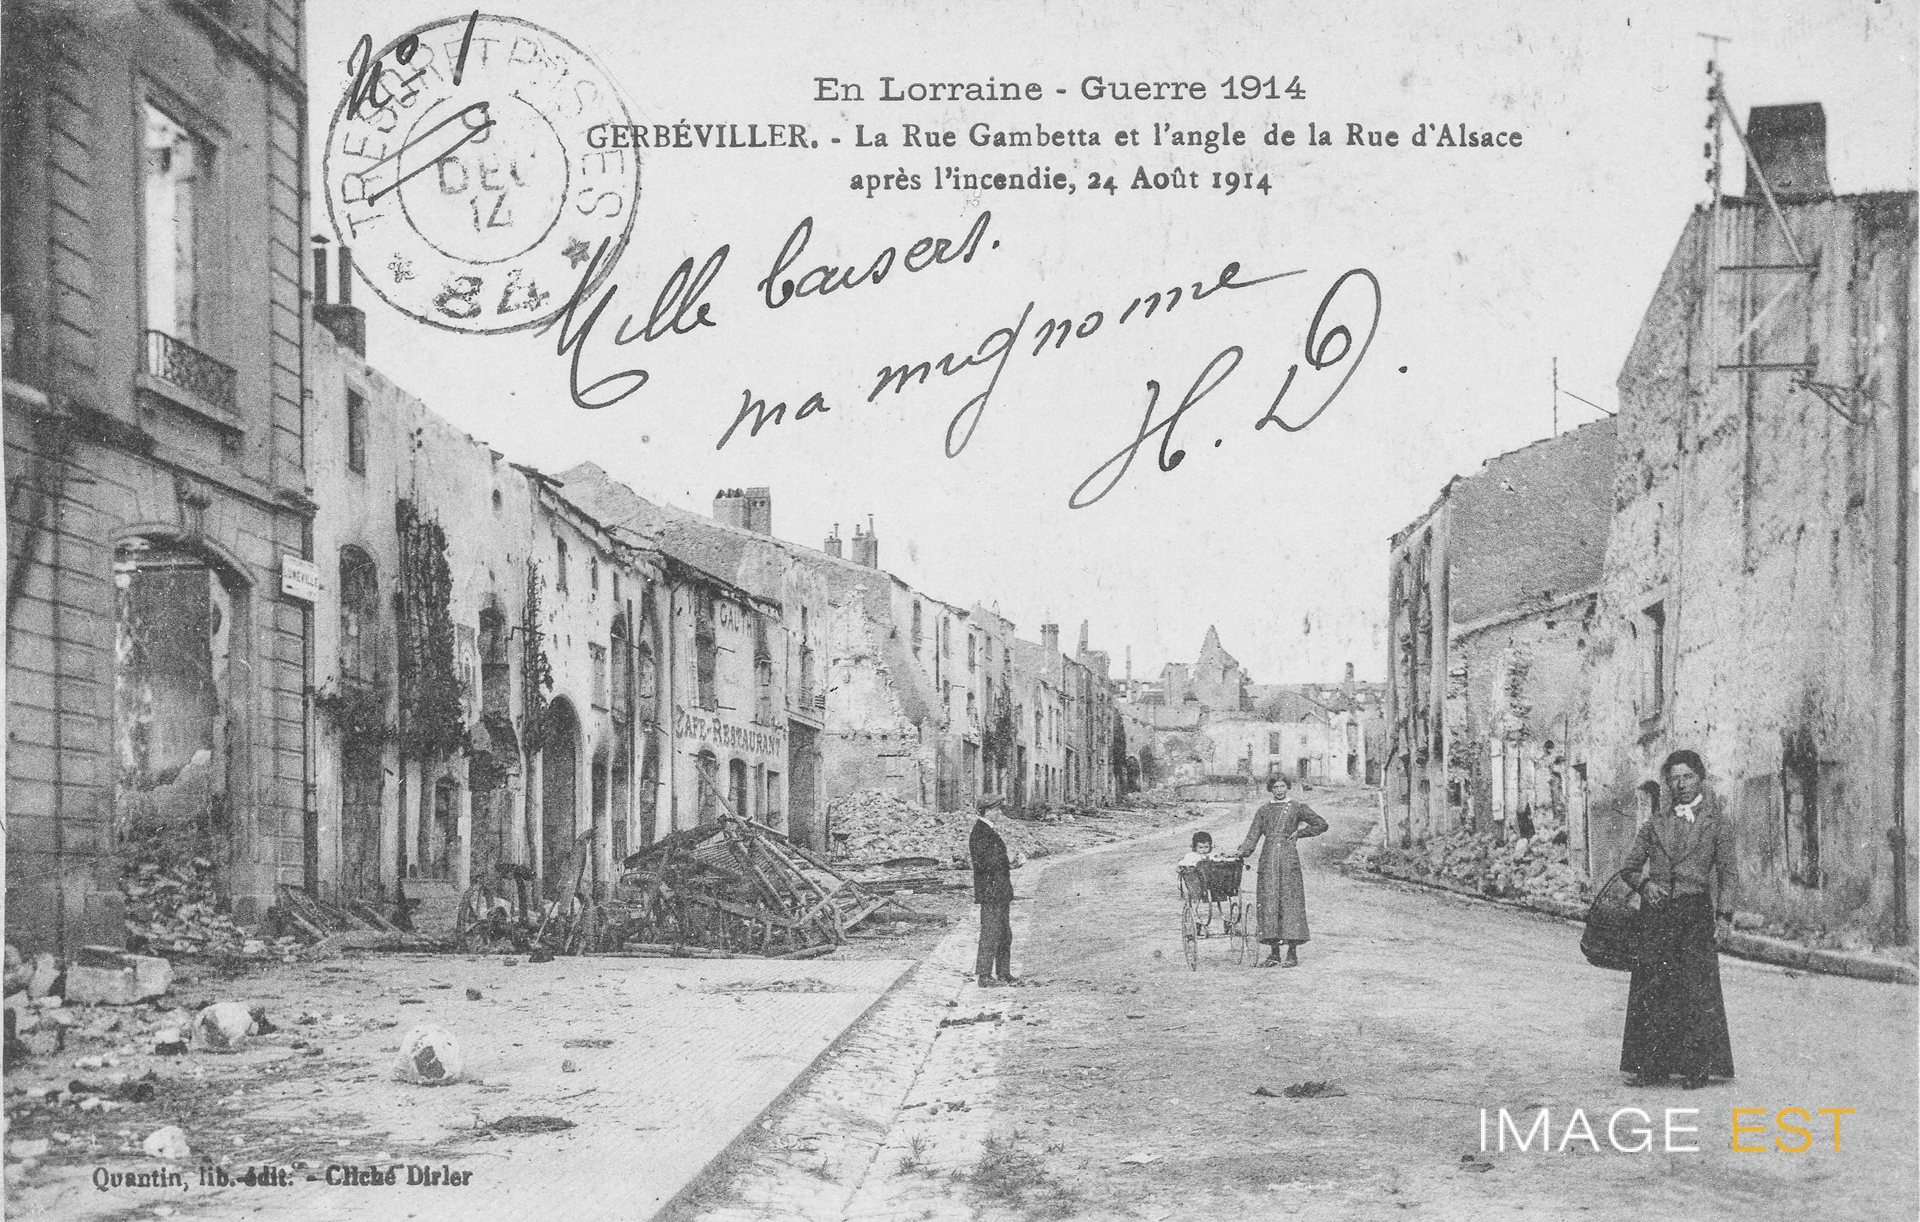 N° 1
TRESOR ET POSTES
9
DEC
14
* 84 *
En Lorraine - Guerre 1914
GERBÉVILLER. - La Rue Gambetta et l'angle de la Rue d'Alsace
après l'incendie, 24 Août 1914
Mille baisers.
ma mignonne
H. D.
LUNEVILLE
GAUTH
CAFE-RESTAURANT
Quantin, lib.-édit. - Cliché Dirler
IMAGE EST